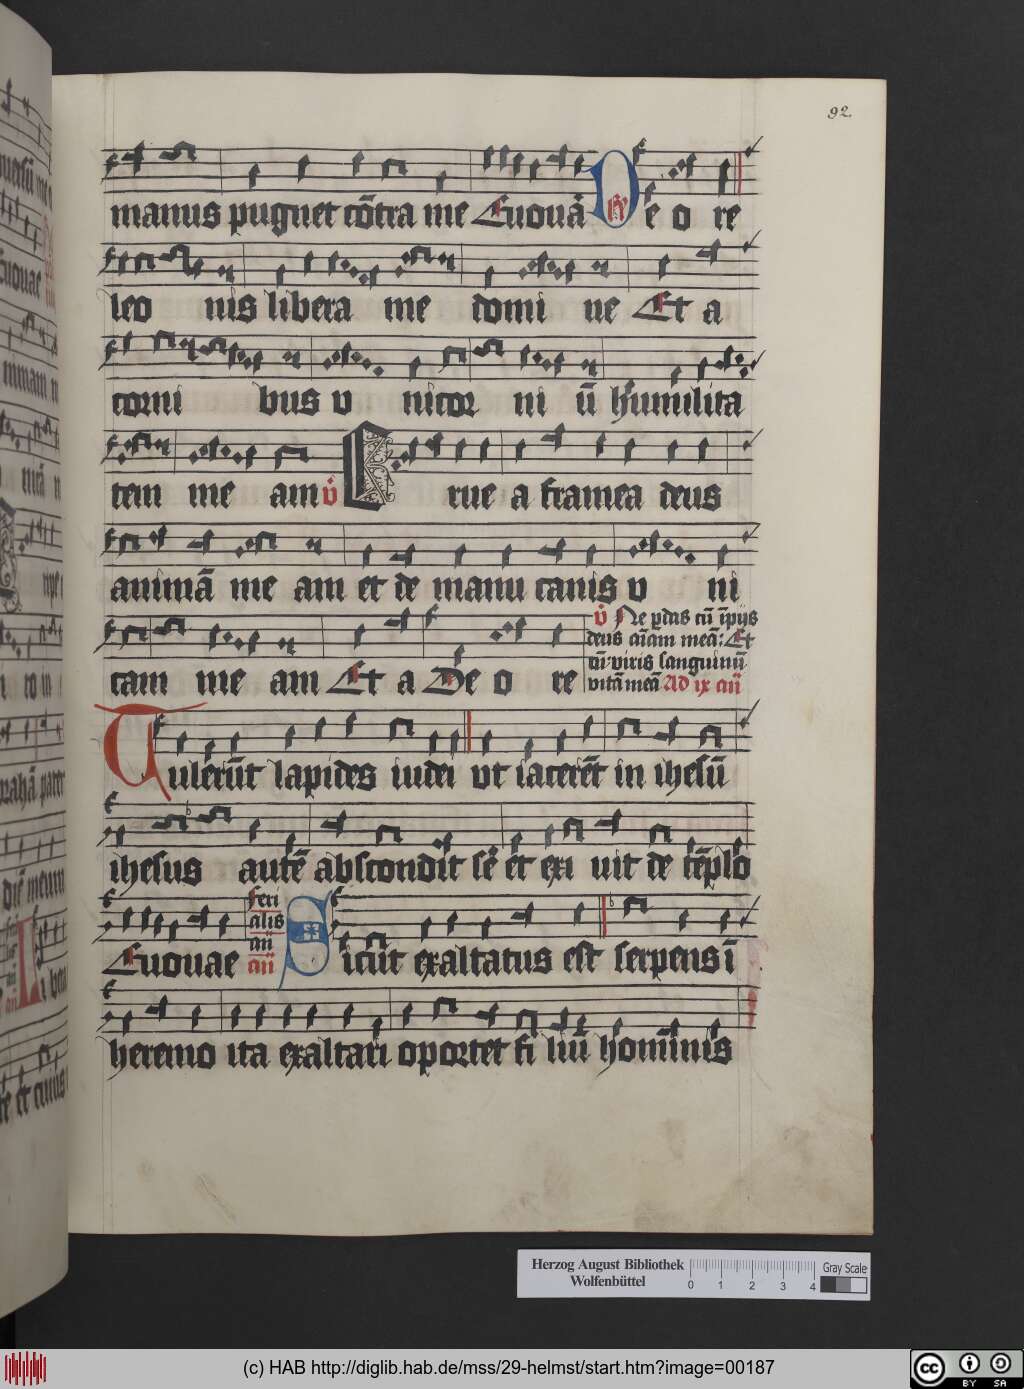 92
manus pugnet cōtra me Euouā Ry De o re
leo nis libera me domi ne Et a
corni bus v nicor ni ū humilita
tem me am v̊ Erue a framea deus
animā me am et de manu canis v ni
cam me am Et a De o re
v̊ Ne p̄das cū īpijs
deus aīam meā: Et
cū viris sanguinū
vitā meā Ad ix an̄
Tulerūt lapides iudei vt iacerēt in ihesū
ihesus autē abscondit sē et exi uit de tēplo
Euouae feri
alis
an̄
Sicut exaltatus est serpens ī
heremo ita exaltari oportet fi liū hominis
Herzog August Bibliothek
Wolfenbüttel
0 1 2 3 4
Gray Scale
(c) HAB http://diglib.hab.de/mss/29-helmst/start.htm?image=00187
cc BY SA